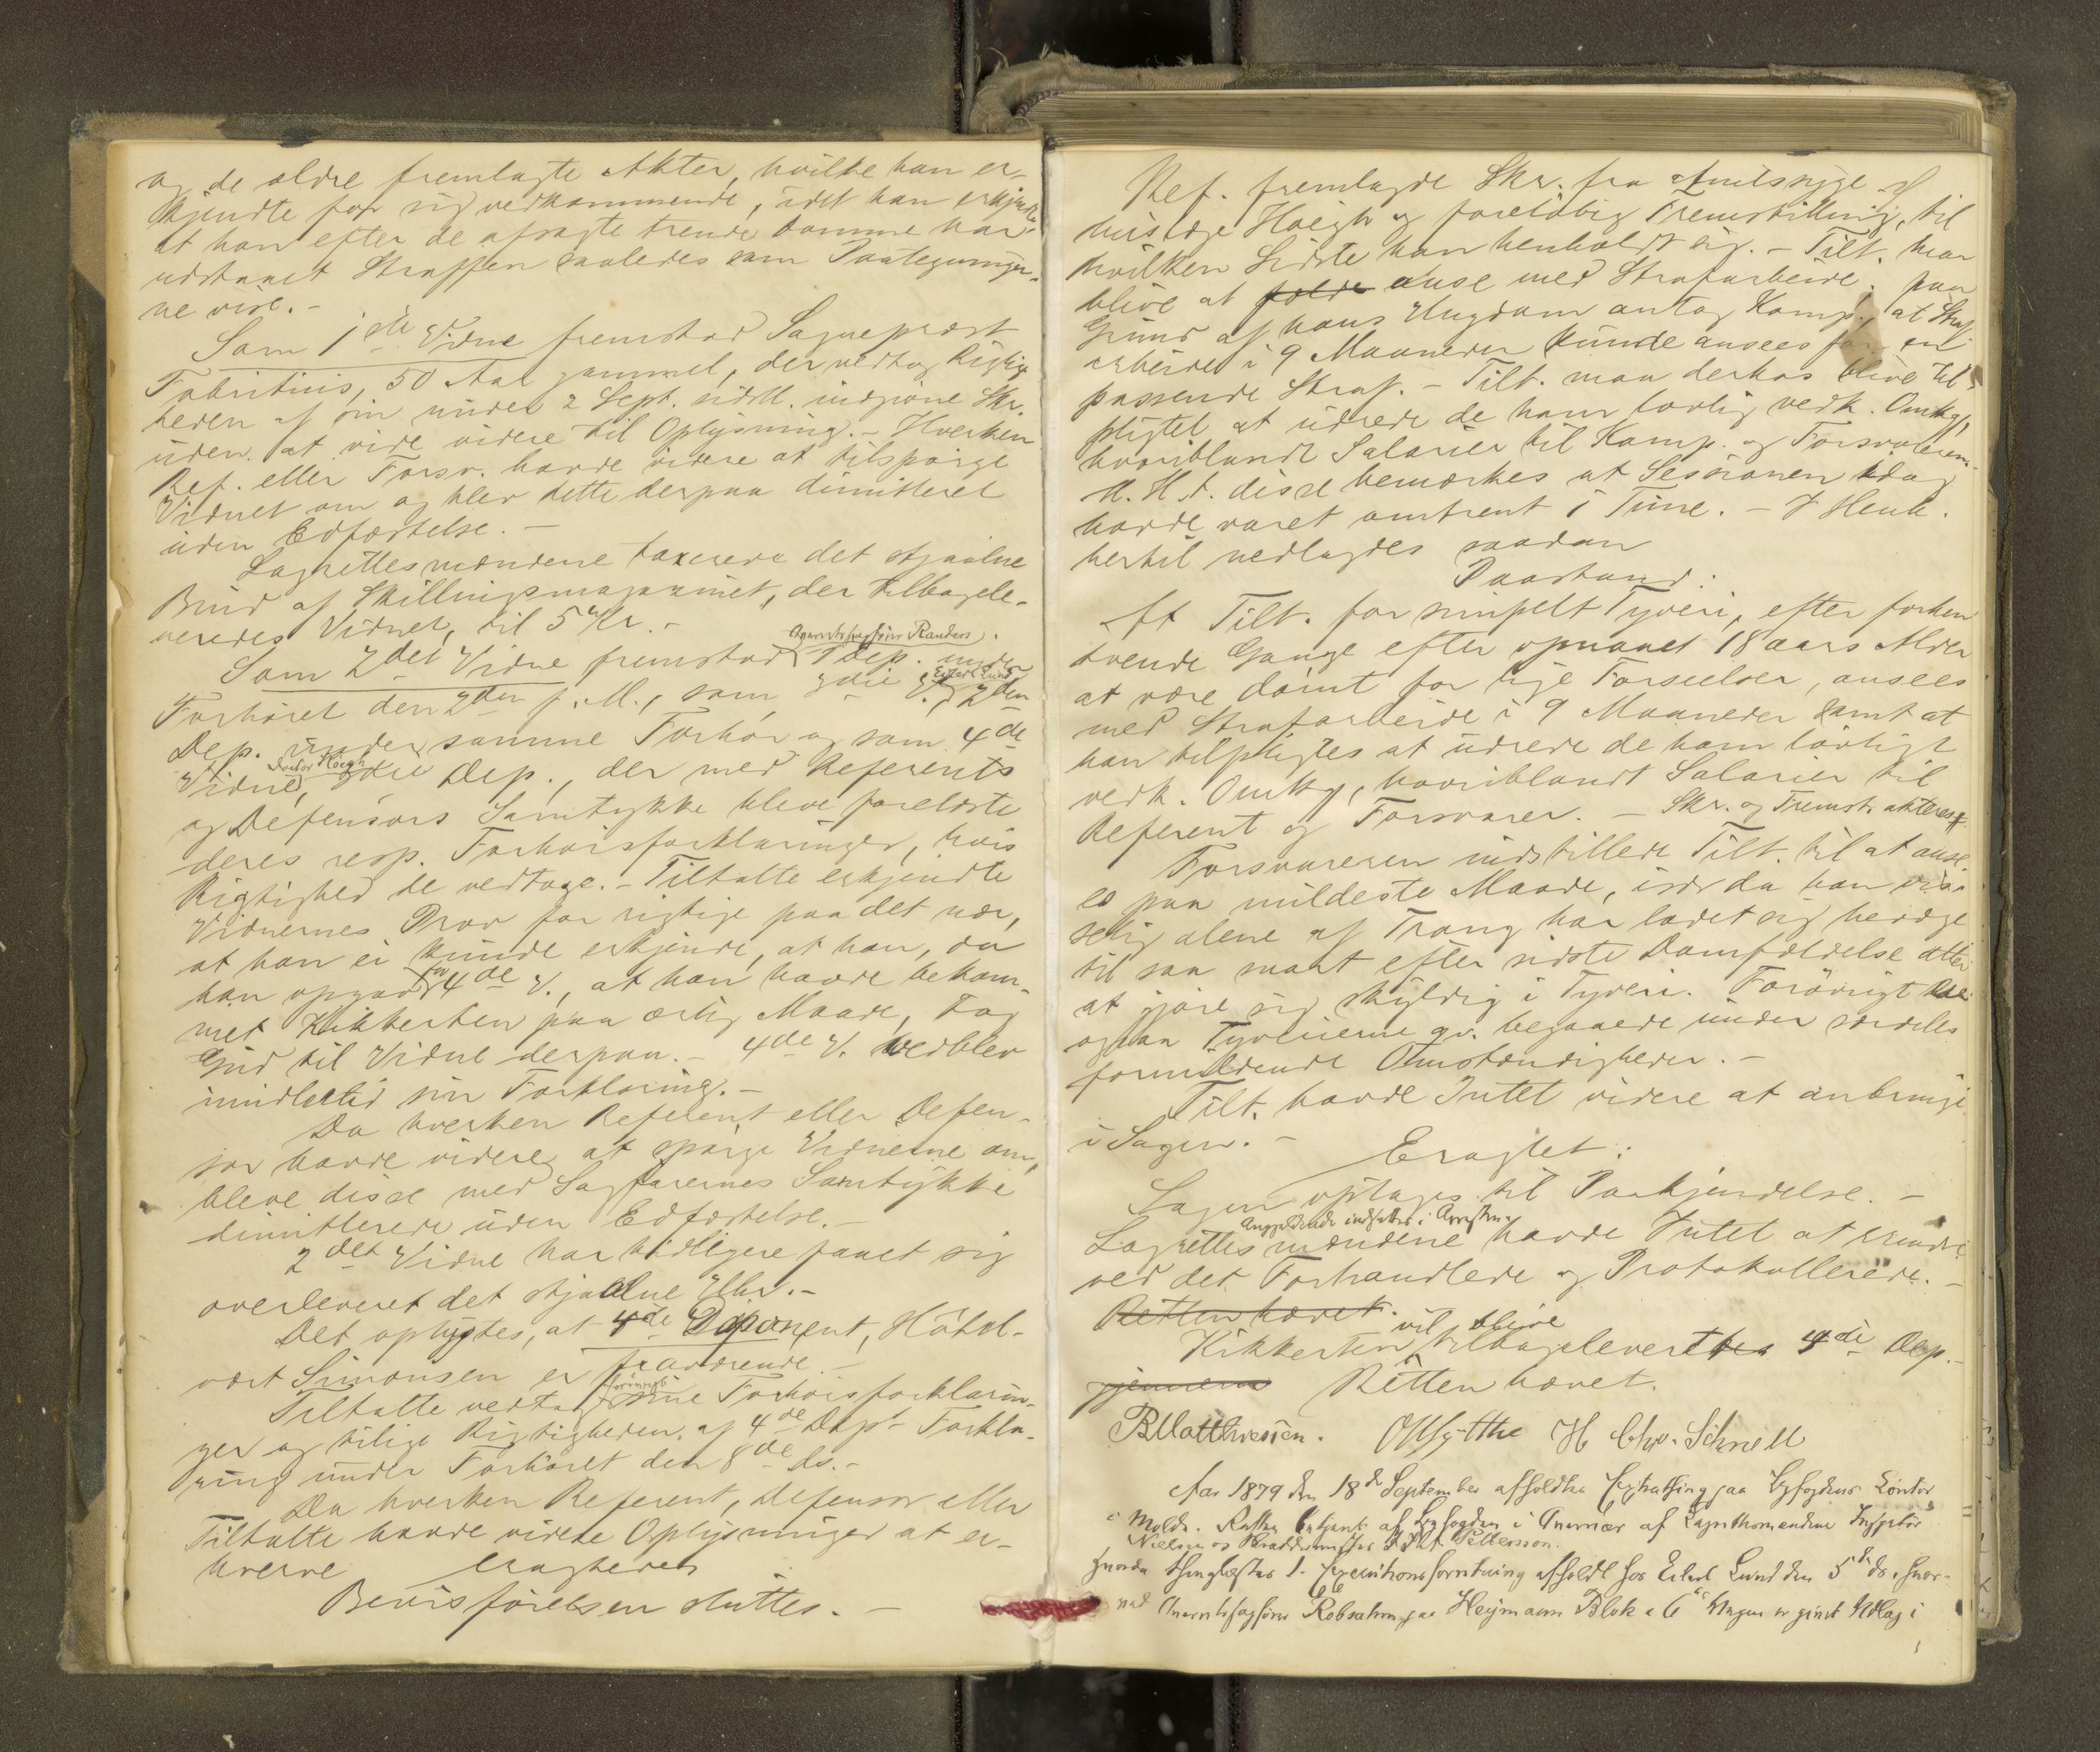 og de ældre fremlagte Akter, hvilke han er-
kjendte for sig vedkommende, idet han erkjendte
at han efter de afsagte trende Domme har
udstaaet Straffen saaledes som Paategninger-
ne vise. -
Som 1ste Vidne fremstod Sognepræst
Fabritius, 50 Aar gammel, der vedtog Rigtig-
heden af sin under 2 Sept. sidstl. indgivne Skr.
uden at vide videre til Oplysning. - Hverken
Ref. eller Forsv. havde videre at tilspørge
Vidnet om og blev dette derpaa dimitteret
uden Edfæstelse. -
Lagrettesmændene taxerede det stjaalne
Bind af Skillingsmagazinet, der tilbagele-
veredes Vidnet, til 5 Kr. -
Som 2det Vidne fremstod 1 Dep. under
Forhøret den 2den f. M., som 3die V. 2den
Dep. under samme Forhør og som 4de
Vidne, Doctor Høegh 3die Dep., der med Referents
og Defensors Samtykke bleve forelæste
deres resp. Forhørsforklaringer, hvis
Rigtighed de vedtoge. - Tiltalte erkjendte
Vidnernes Prov for rigtige paa det nær,
at han ei kunde erkjende, at han, da
han opgav for 4de V., at han havde bekom-
met Kikkerten paa ærlig Maade, tog
Gud til Vidne derpaa. - 4de V. vedblev
imidlertid sin Forklaring. -
Da hverken Referent eller Defen-
sor havde videre at spørge Vidnerne om,
bleve disse med Sagførernes Samtykke
dimitterede uden Edfæstelse. -
2det Vidne har tidligere faaet sig
overleveret det stjaalne Uhr. -
Det oplystes, at 4de Deponent, Hotel-
vært Simonsen er fraværende -
Tiltalte vedtog forøvrigt sine Forhørsforklarin-
ger og tilige Rigtigheden af 4de Dept Forkla-
ring under Forhøret den 8de ds. -
Da hverken Referent, Defensor eller
Tiltalte havde videre Oplysninger at er-
hverve eragtedes
Bevisførelsen sluttes. -
Ref. fremlagde Skr. fra Amtssyge-
huslæge Høegh og foreløbig Fremstilling, til
hvilken Sidste han henholdt sig. - Tilt. maa
blive at ansee med Strafarbeide. paa
Grund af hans Ungdom antog Komp. at Straf-
arbeide i 9 Maaneder kunde ansees for en
passende Straf. - Tilt. maa derhos blive til-
pligtet at udrede de ham lovlig vedk. Omkg,
hvoriblandt Salarier til Komp. og Forsvareren.
M. H. t. disse bemærkes at Sessionen idag
havde varet omtrent 1 Time. - I Henh.
hertil nedlagdes saadan
Paastand:
At Tilt. for simpelt Tyveri, efter forhen
tvende Gange efter opnaaet 18 aars Alder
at være dømt for lige Forseelser, ansees
med Strafarbeide i 9 Maaneder samt at
han tilpligtes at udrede de ham lovligt
vedk. Omkg, hvoriblandt Salarier til
Referent og Forsvarer. - Skr. og Fremst. akteres
Forsvareren indstillede Tilt. til at anse-
es paa mildeste Maade, især da han vis-
selig alene af Trang har ladet sig bevæge
til saa snart efter sidste Domfældelse atter
at gjøre sig skyldig i Tyveri. Forøvrigt ere
ogsaa Tyverierne qv. begaaede under særdeles
formildende Omstændigheder. -
Tilt. havde Intet videre at anbringe
i Sagen. -
Eragtet:
Sagen optages til Paakjendelse. -
Angjeldende indsættes i Arresten.
Lagrettesmændene havde Intet at erindre
ved det Forhandlede og Protokollerede. -
Retten hævet.
Kikkerten vil blive tilbageleveret 4de Dep. -
Retten hævet.
B Matthiesen. H Chr. Schnell
Aar 1879 den 18de September afholdtes Extrathing paa Byfogdens Kontor
i Molde. Retten betjent af Byfogden i Nærvær af Lagrettemændene
Nielsen os Pettersson.
hvorda thinglæstes 1. Executionsforretning afholdt hos Erlend Lund den 5te ds.
Overretssagfører Robsahm paa Heymann Bloks Vegne er gjort Udlæg i